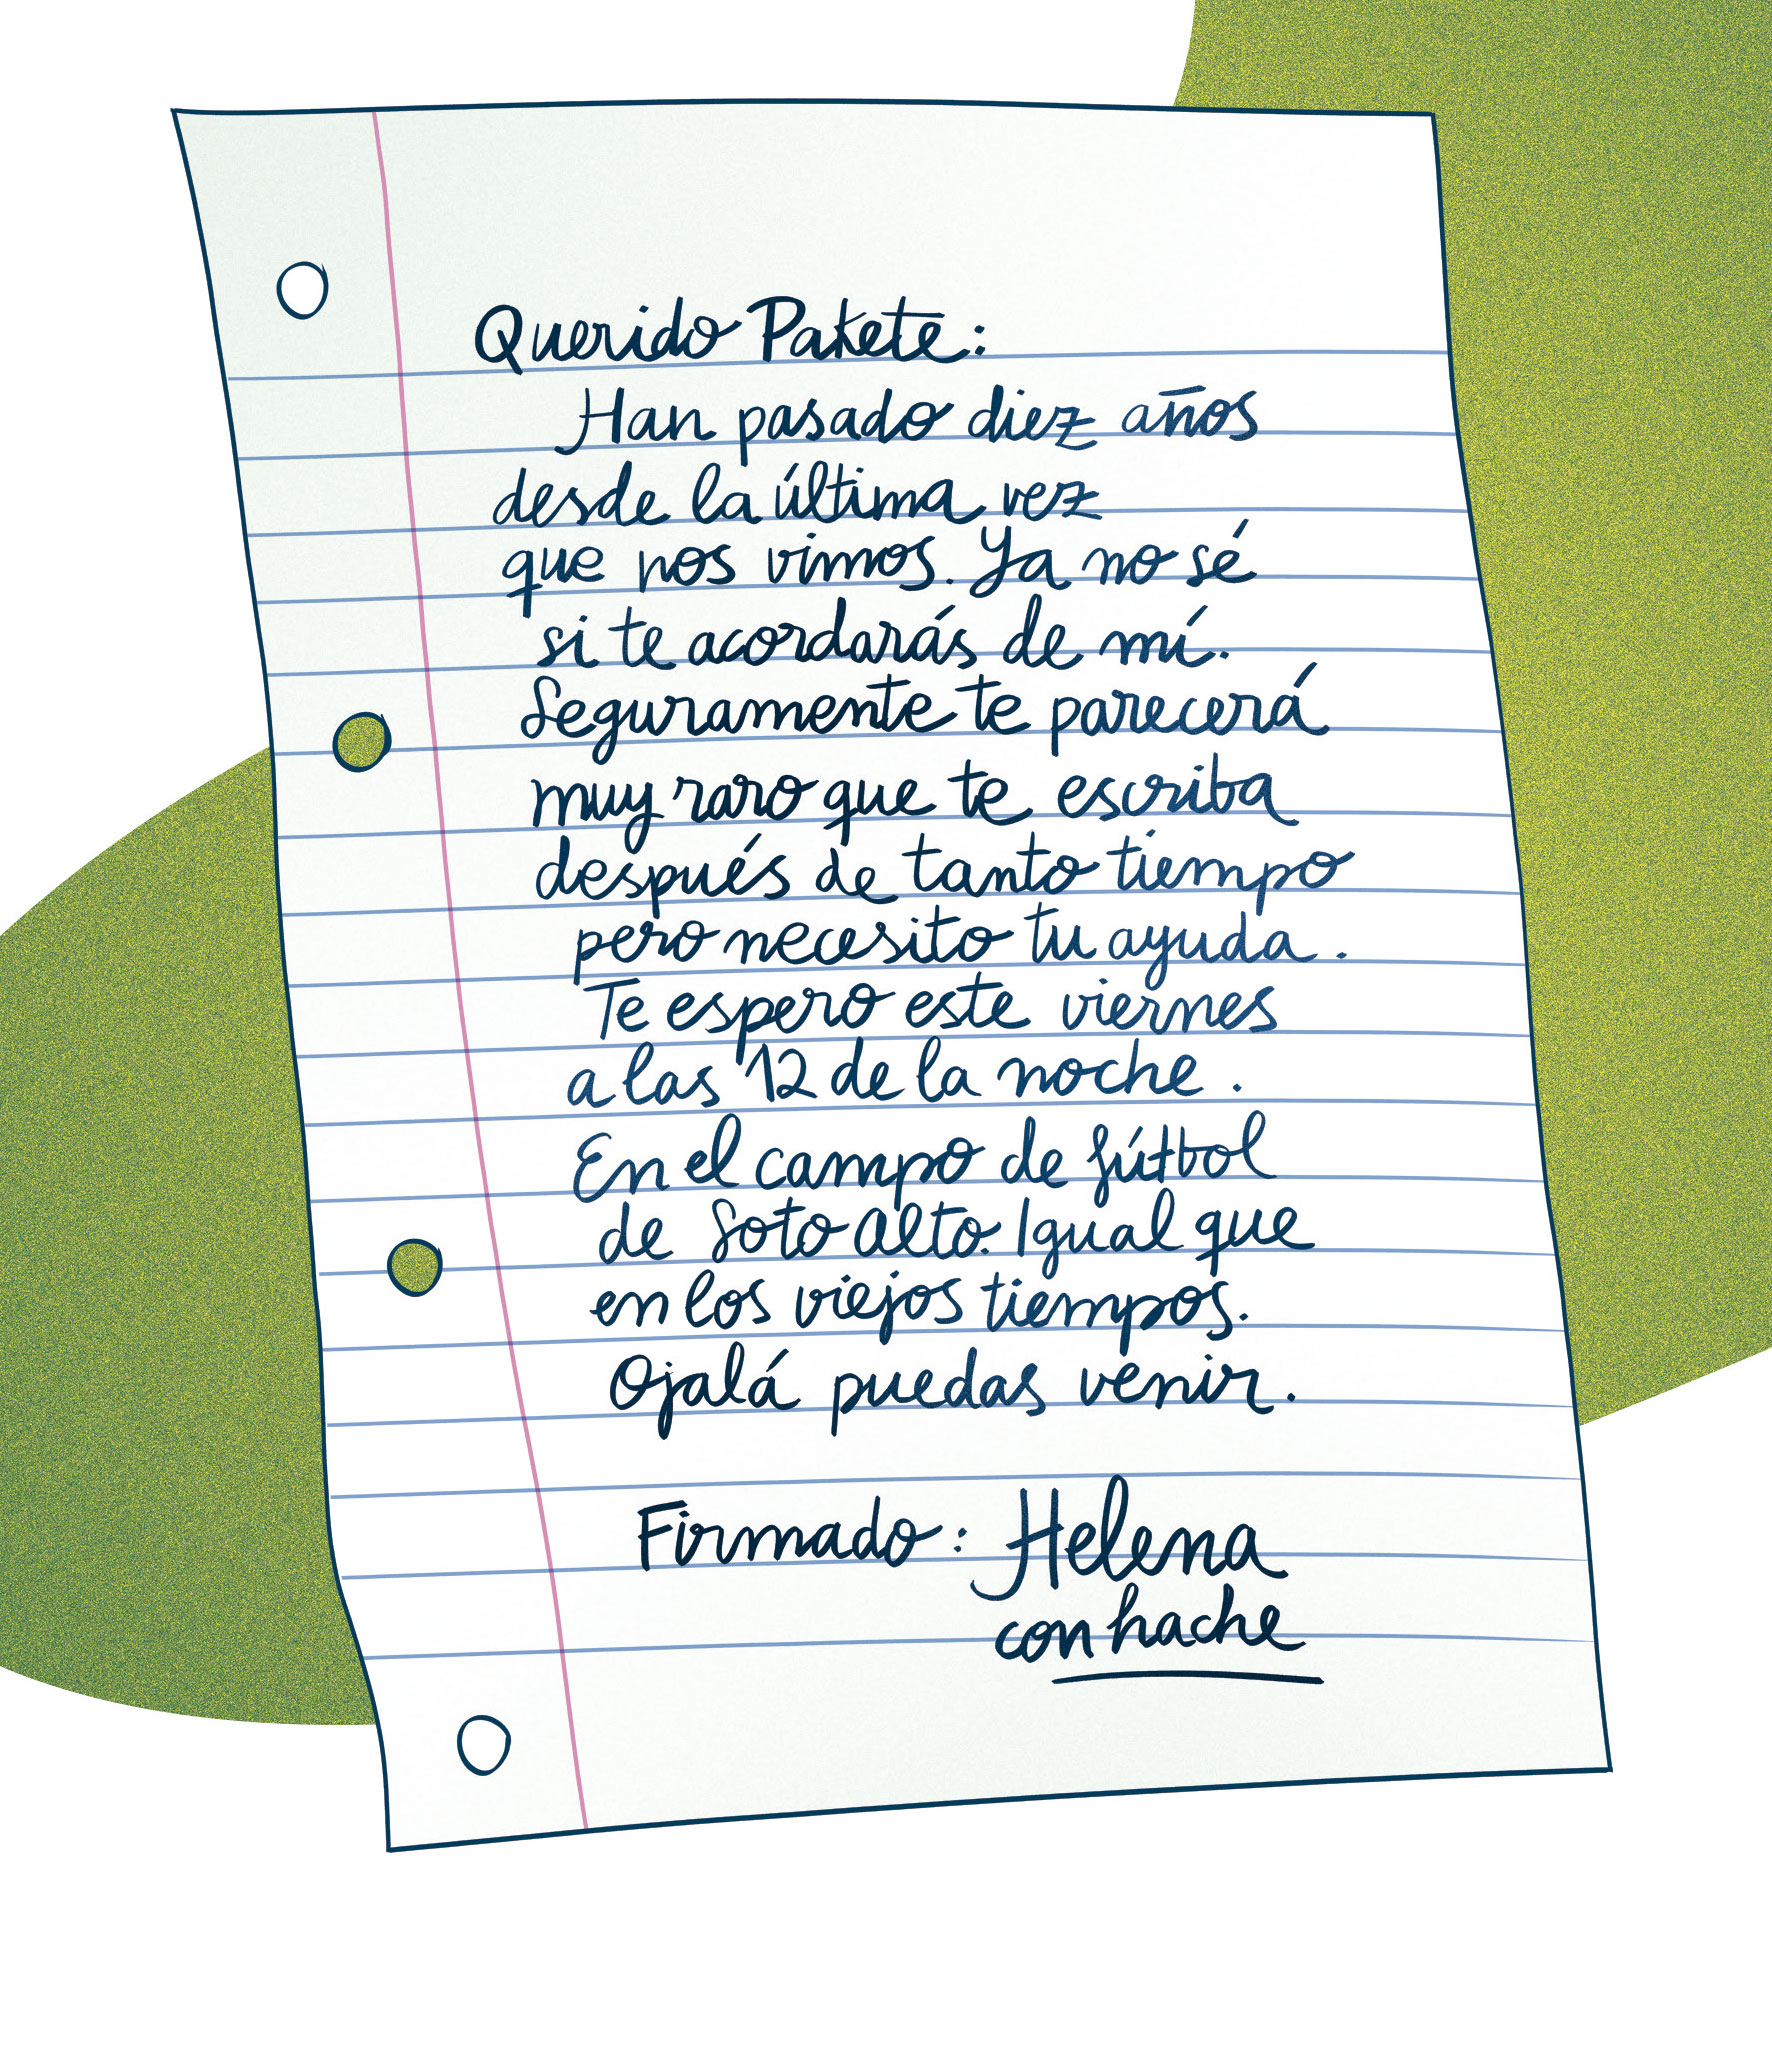 Querido Pakete:
Han pasado diez años
desde la última vez
que nos vimos. Ya no sé
si te acordarás de mí.
Seguramente te parecerá
muy raro que te escriba
después de tanto tiempo
pero necesito tu ayuda.
Te espero este viernes
a las 12 de la noche.
En el campo de fútbol
de Soto Alto. Igual que
en los viejos tiempos.
Ojalá puedas venir.
Firmado: Helena
con hache